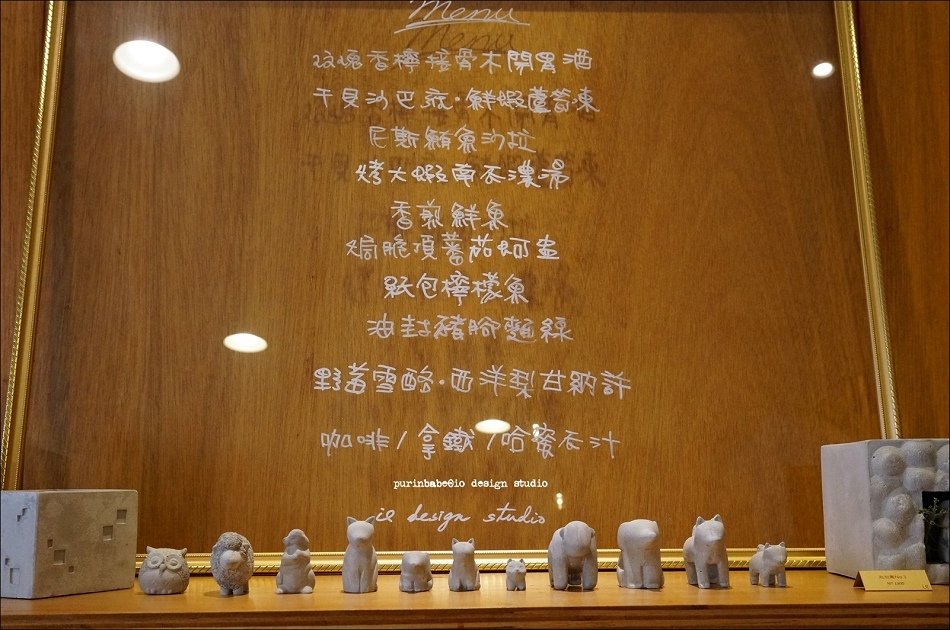 Menu
玫瑰香檸接骨木開胃酒
干貝沙巴庇·鮮蝦蘆筍凍
尼斯鮪魚沙拉
烤大蝦南瓜濃湯
香煎鮮魚
焗脆頂蕃茄蚵盅
紙包檸檬魚
油封豬腳麵線
野莓雪酪·西洋梨甘納許
咖啡/拿鐵/哈蜜瓜汁
purinbabe@io design studio
io design studio